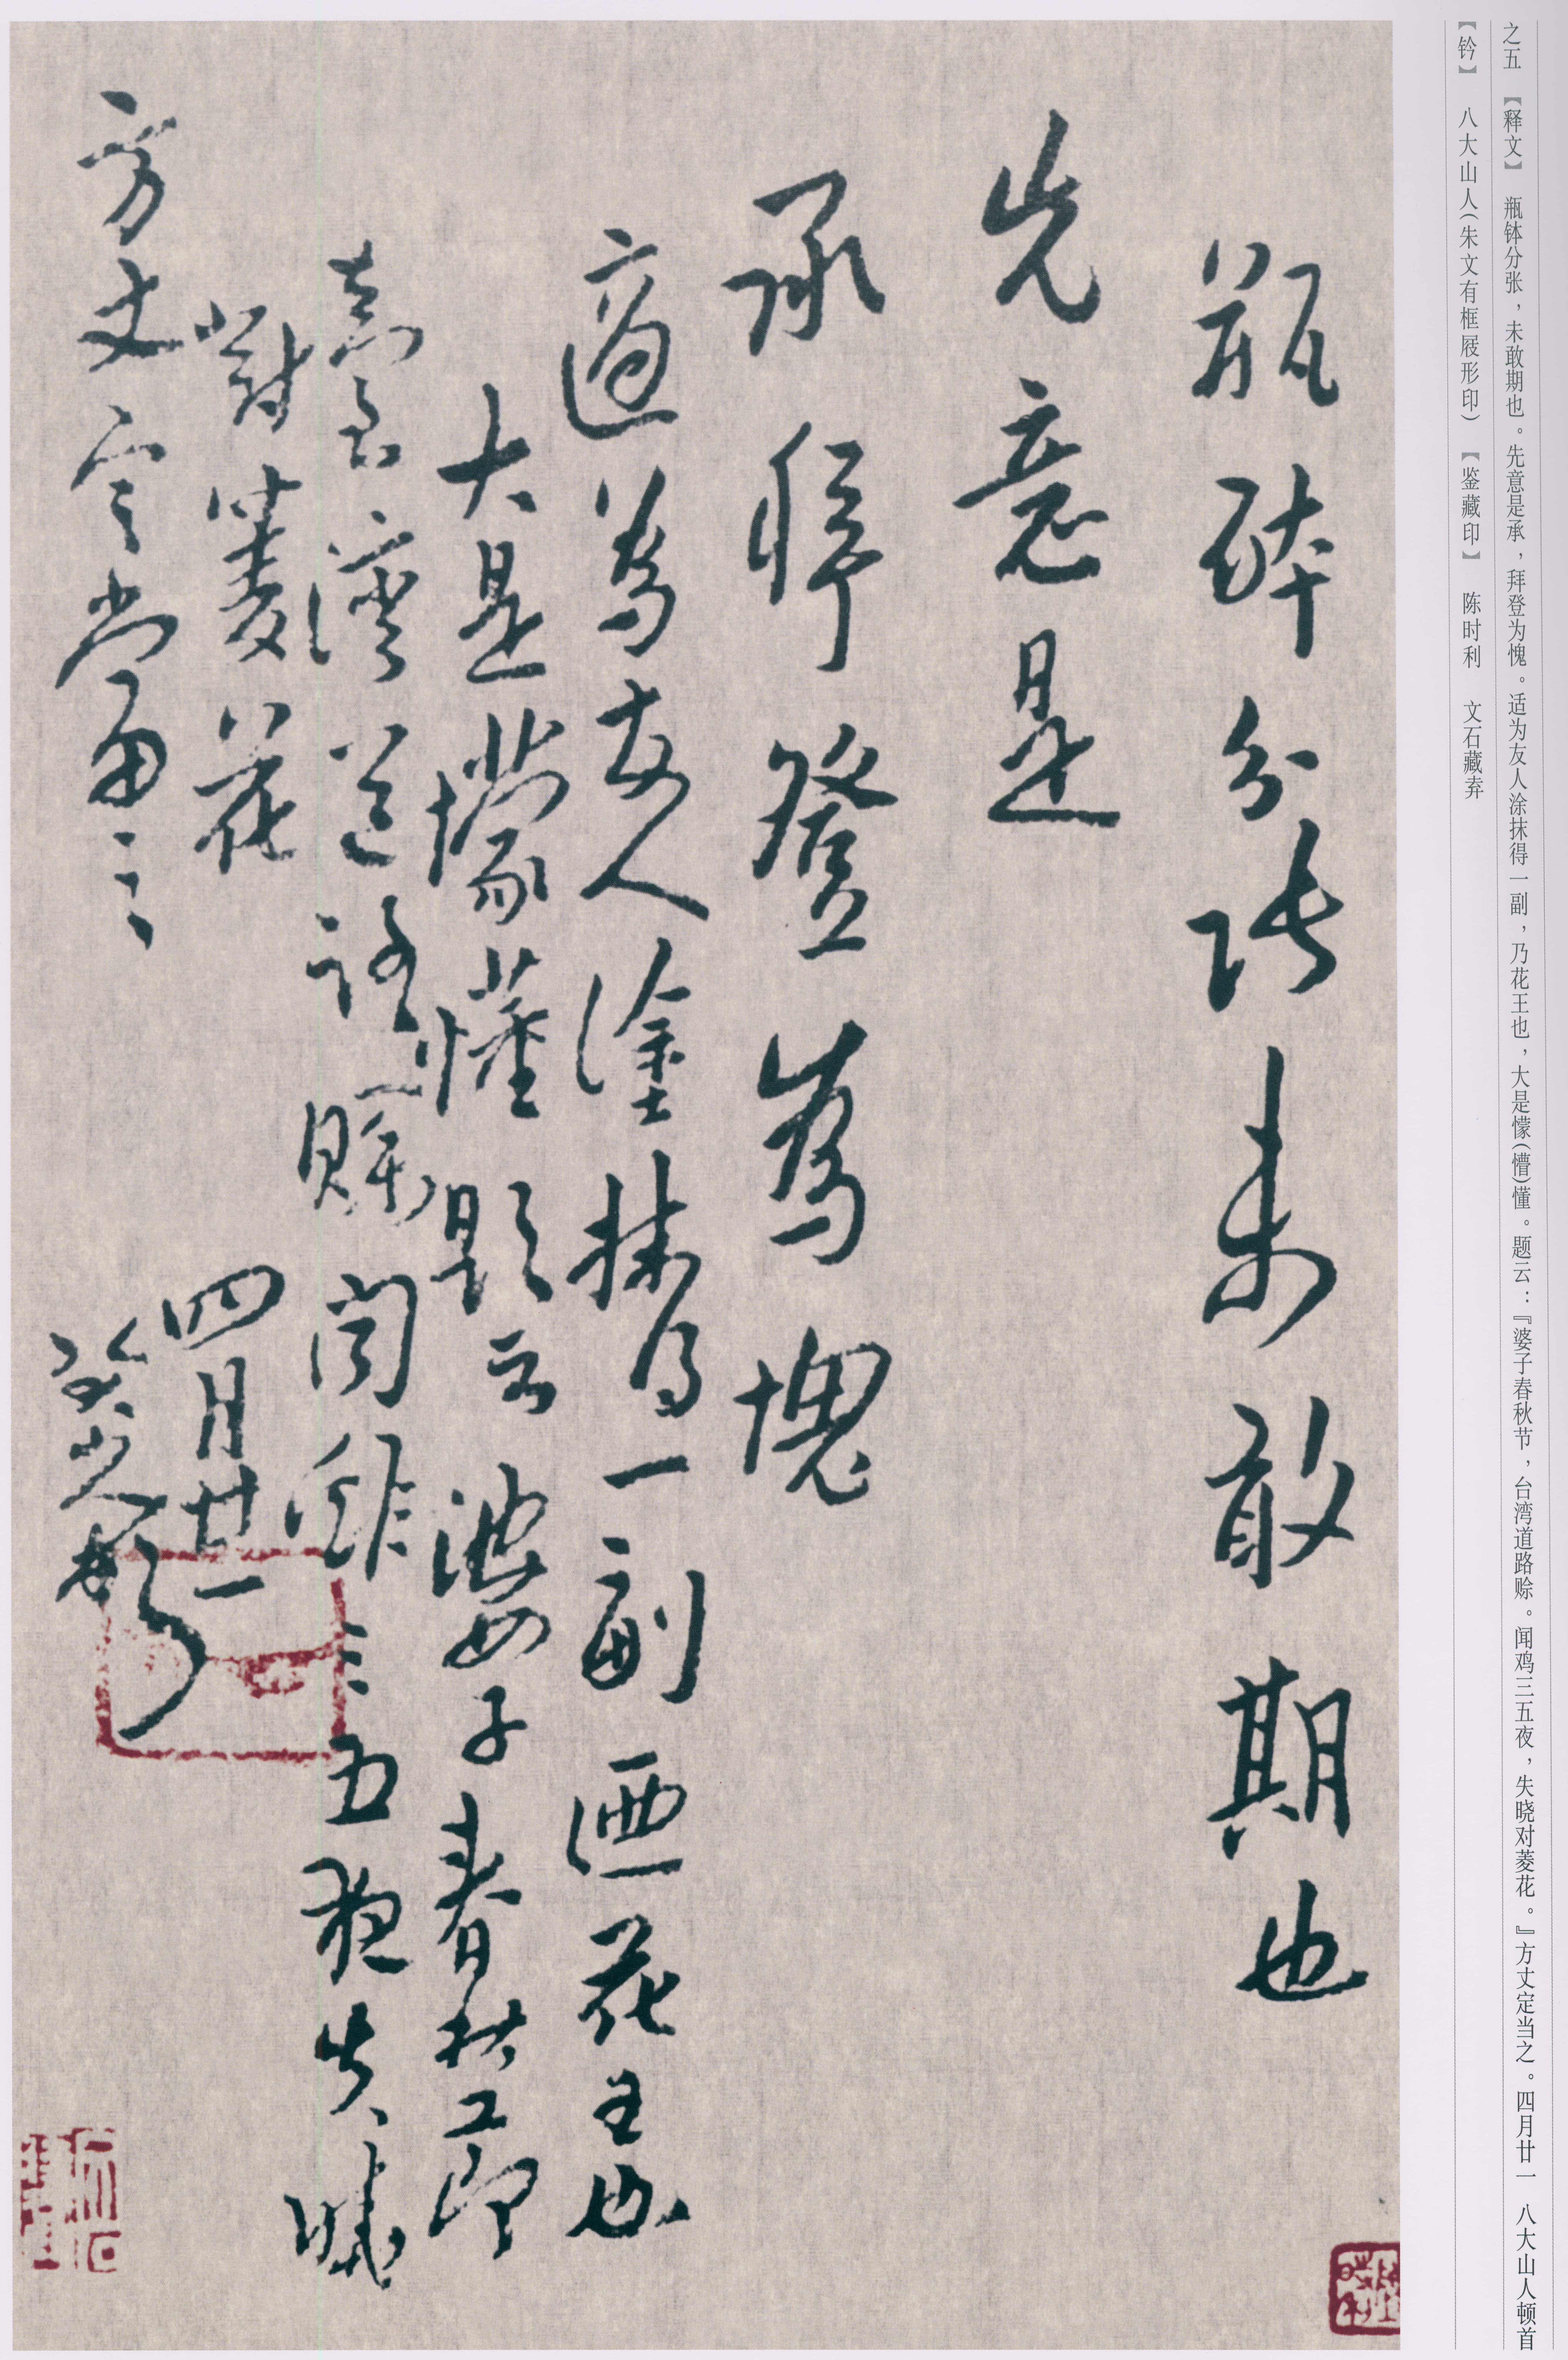 之五 【释文】 瓶钵分张，未敢期也。先意是承，拜登为愧。适为友人涂抹得一副，乃花王也，大是懞(懵)懂。题云：『婆子春秋节，台湾道路赊。闻鸡三五夜，失晓对菱花。』方丈定当之。四月廿一 八大山人顿首
【钤】 八大山人(朱文有框屐形印) 【鉴藏印】 陈时利 文石藏弆
瓶鉢分張未敢期也
先意是
承拜登為愧
適為友人塗抹得一副迺花王也
大是懞懂題云婆子春秋節
臺灣道路賖聞雞三五夜失曉
對菱花
方丈定當之
四月廿一
八大山人頓首